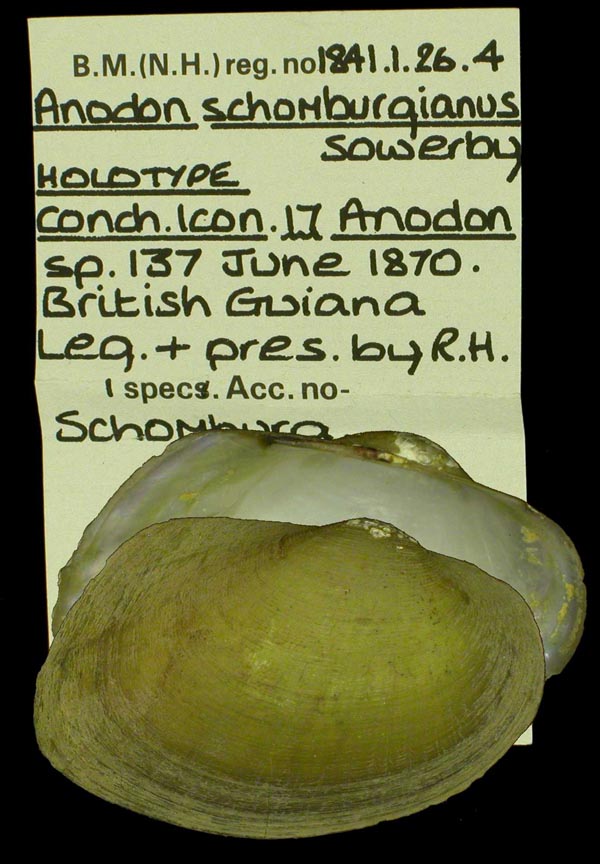 B.M.(N.H.) reg. no 1841.1.26.4
Anodon schomburgianus
Sowerby
HOLOTYPE
Conch. Icon. 17 Anodon
sp. 137 June 1870.
British Guiana
Leg. + pres. by R.H.
1 specs. Acc. no-
Schomburg